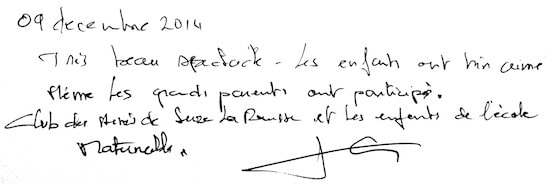 09 decembre 2014
Très beau spectacle - Les enfants ont bien aimé
Même Les grands parents ont participé.
Club des aînés de Suze La Rousse et Les enfants de l'école
Maternelle.